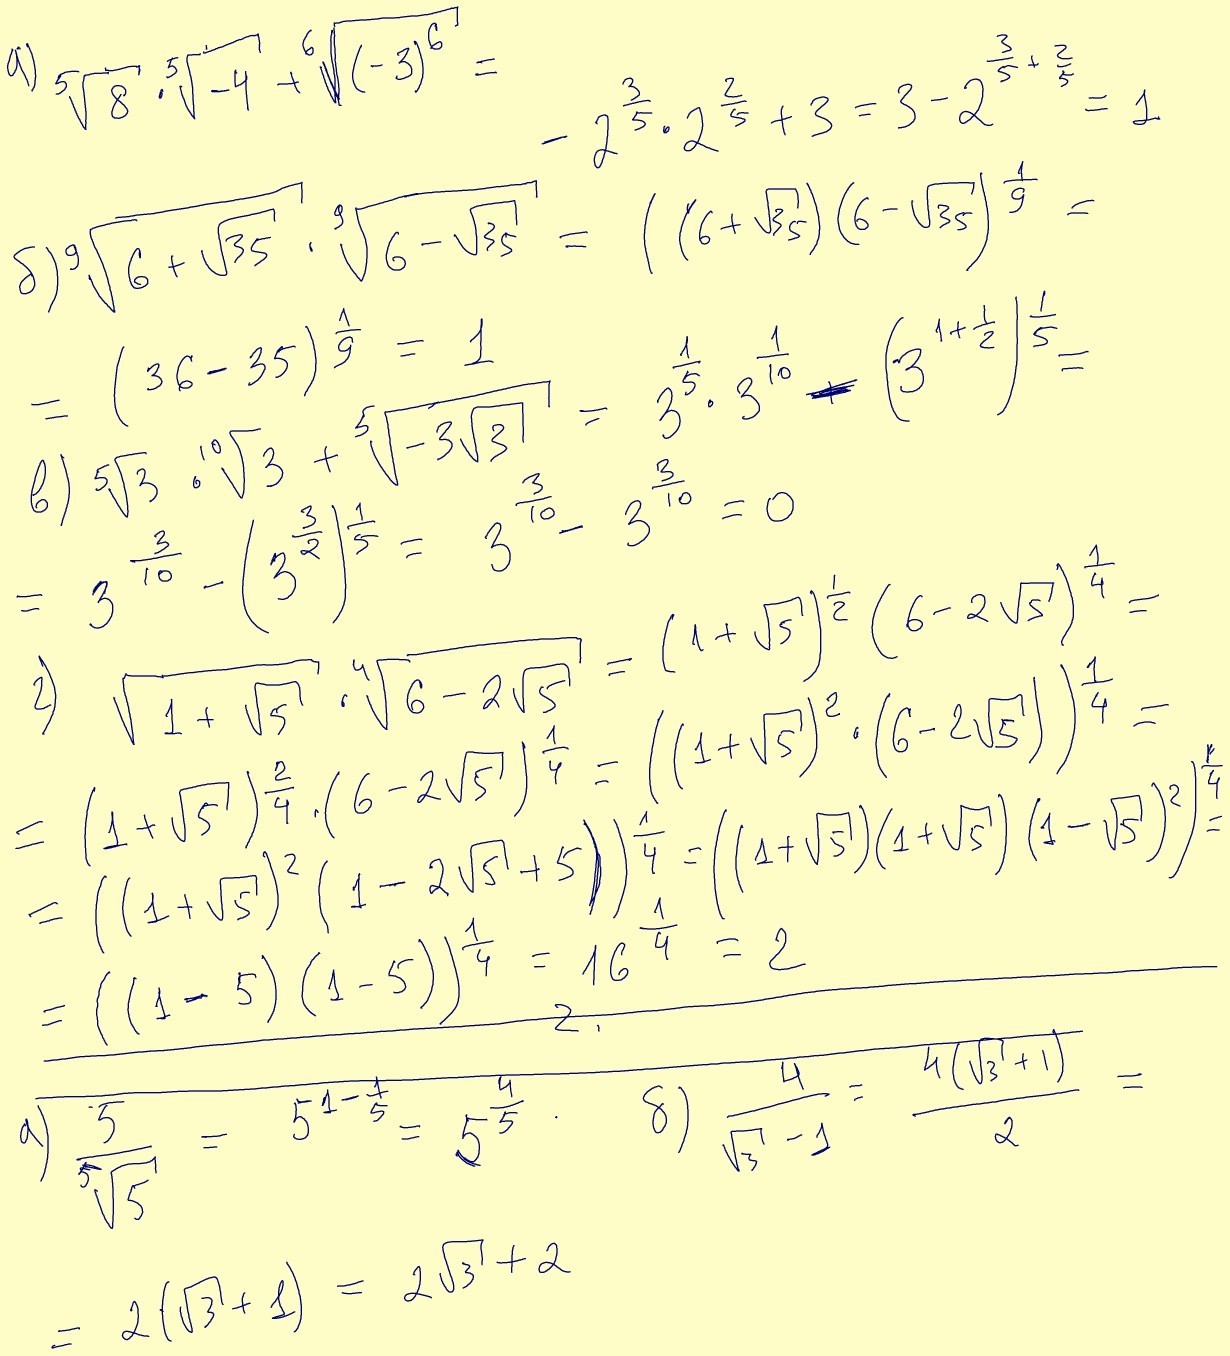 а) ⁵√8 · ⁵√-4 + ⁶√(-3)⁶ =
- 2^(3/5) · 2^(2/5) + 3 = 3 - 2^(3/5 + 2/5) = 1
б) ⁹√(6 + √35) · ⁹√(6 - √35) = ((6 + √35)(6 - √35)^(1/9) =
= (36 - 35)^(1/9) = 1
в) ⁵√3 · ¹⁰√3 + ⁵√(-3√3) = 3^(1/5) · 3^(1/10) - (3^(1 + 1/2))^(1/5) =
= 3^(3/10) - (3^(3/2))^(1/5) = 3^(3/10) - 3^(3/10) = 0
г) √(1 + √5) · ⁴√(6 - 2√5) = (1 + √5)^(1/2) (6 - 2√5)^(1/4) =
= (1 + √5)^(2/4) · (6 - 2√5)^(1/4) = ((1 + √5)² · (6 - 2√5))^(1/4) =
= ((1 + √5)² (1 - 2√5 + 5))^(1/4) = ((1 + √5)(1 + √5)(1 - √5)²)^(1/4) =
= ((1 - 5)(1 - 5))^(1/4) = 16^(1/4) = 2
2.
а) 5/⁵√5 = 5^(1 - 1/5) = 5^(4/5) . б) 4/(√3 - 1) = 4(√3 + 1)/2 =
= 2(√3 + 1) = 2√3 + 2